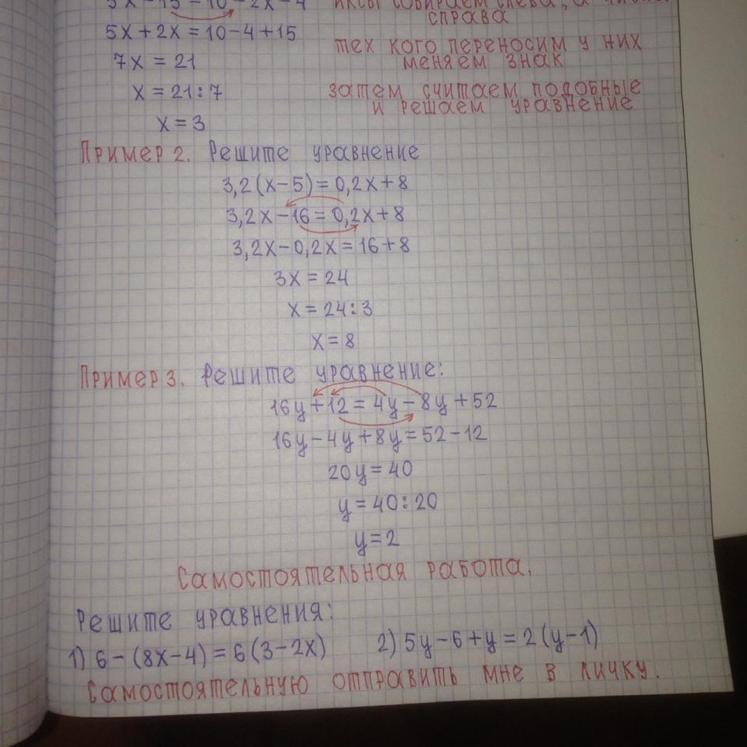 5x - 15 = 10 - 2x - 4
иксы собираем слева, а числа
справа
5x + 2x = 10 - 4 + 15
тех кого переносим у них
меняем знак
7x = 21
x = 21 : 7
затем считаем подобные
и решаем уравнение
x = 3
Пример 2. Решите уравнение
3,2(x-5) = 0,2x + 8
3,2x - 16 = 0,2x + 8
3,2x - 0,2x = 16 + 8
3x = 24
x = 24 : 3
x = 8
Пример 3. Решите уравнение:
16y + 12 = 4y - 8y + 52
16y - 4y + 8y = 52 - 12
20y = 40
y = 40 : 20
y = 2
Самостоятельная работа.
Решите уравнения:
1) 6 - (8x - 4) = 6(3 - 2x) 2) 5y - 6 + y = 2(y - 1)
Самостоятельную отправить мне в личку.